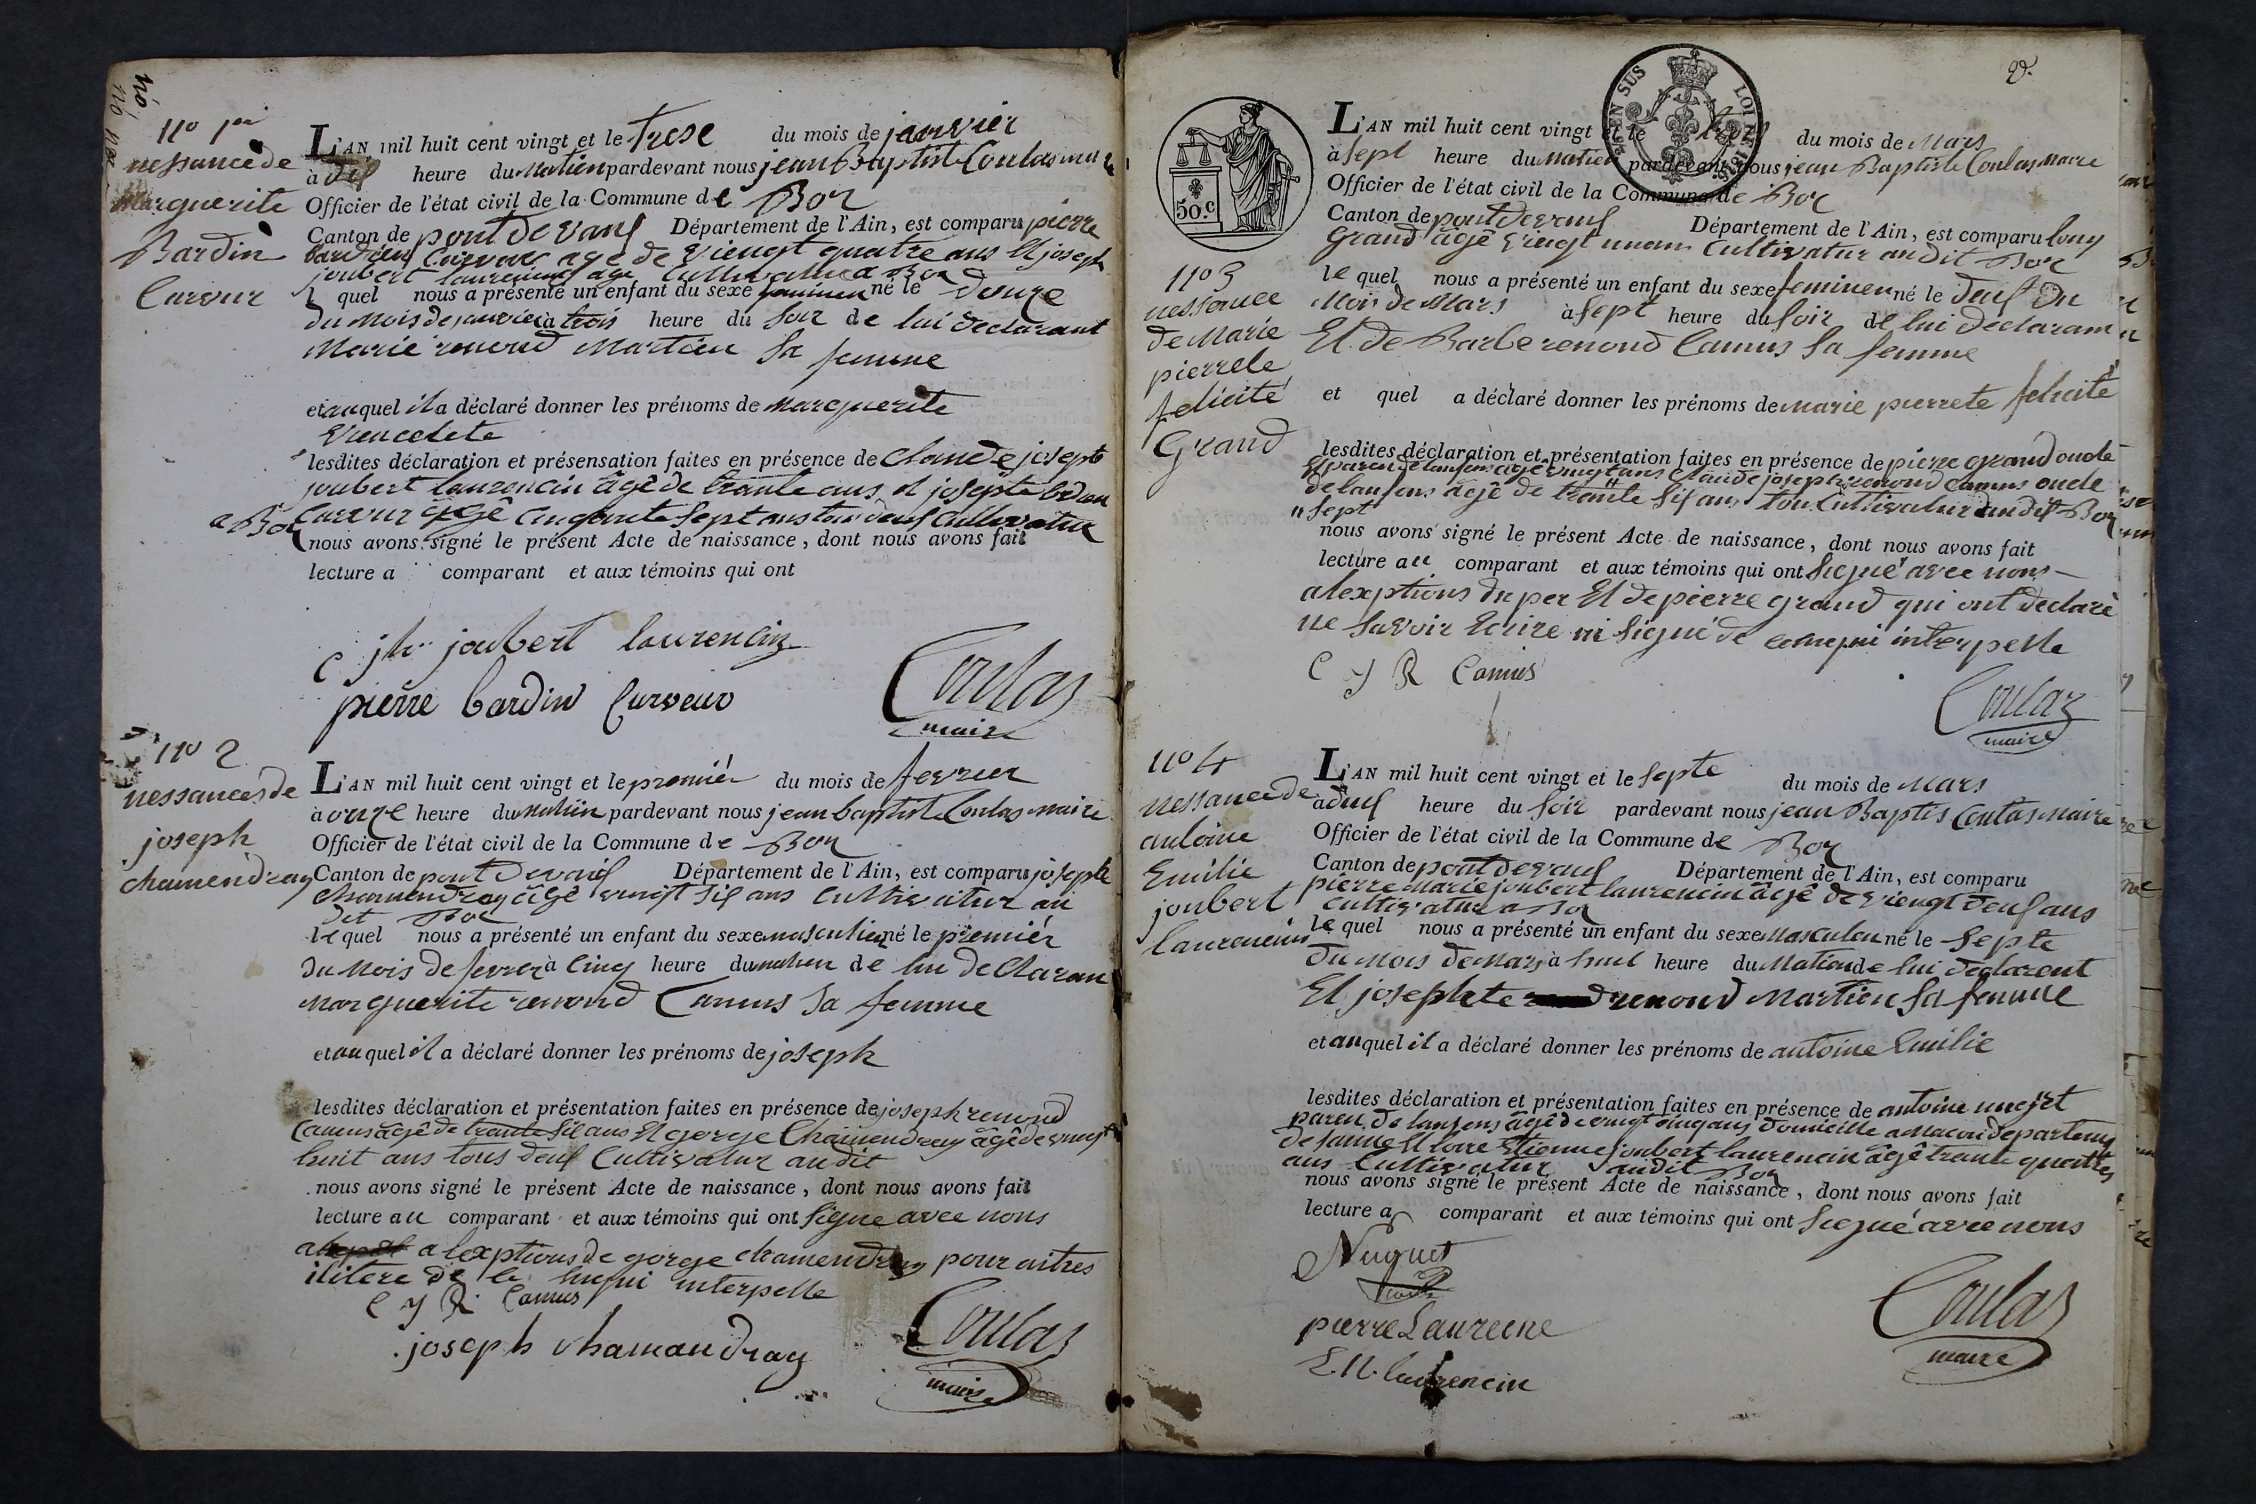 no 1er
nessance de
Marguerite
Bardin
Curveur
L'AN mil huit cent vingt et le trese du mois de janvier
à dix heure du Matien pardevant nous jean Baptiste Coulas
Officier de l'état civil de la Commune de Boz
Canton de pont De vaux Département de l'Ain, est comparu pierre
age de viengt quatre ans Et joseph
joubert laurencins age Cultivateur a Boz
l quel nous a présenté un enfant du sexe feminien né le Douze
du Mois de janvier à trois heure du Soir de lui declarant
Marie renoud Martien Sa femme
et auquel il a déclaré donner les prénoms de Marguerite
lesdites déclaration et présensation faites en présence de Claude joseph
joubert laurencin âgé de trante ans et josephte
Curveur âgé Cinquante Sept ans tous deux Cultivateur
a Boz
nous avons signé le présent Acte de naissance, dont nous avons fait
lecture a comparant et aux témoins qui ont
C jh joubert laurencin
pierre bardin Curveur
Coulas
maire
no 2
nessances de
joseph
chamendray
L'AN mil huit cent vingt et le premiér du mois de fevrier
à onze heure du Matiin pardevant nous jean baptiste Coulas maire
Officier de l'état civil de la Commune de Boz
Canton de pont De vaux Département de l'Ain, est comparu josephte
chamendray âgé vingt six ans Cultivateur au
dit Boz
le quel nous a présenté un enfant du sexe masculien né le premiér
du Mois de fevrer à Cinq heure du matien de lui de Claran
Marguerite renoud Camus Sa femme
et au quel il a déclaré donner les prénoms de joseph
lesdites déclaration et présentation faites en présence de joseph renoud
Camus âgé de trante Six ans Et gorge Chamendray âgé de vingt
huit ans tous deux Cultivateur au dit
nous avons signé le présent Acte de naissance, dont nous avons fait
lecture au comparant et aux témoins qui ont Signe avec nous
a lexptions de gorge chamendray pour aitres
ilitere de le interpelle
C J R Camus
joseph chamandray
Coulas
maire
2e.
A EN SUS LOI DE 18
50.c
no 3
nessance
de Marie
pierrete
felicité
Grand
L'AN mil huit cent vingt et le trois du mois de Mars
à Sept heure du Matien pardevant nous jean Baptiste Coulas Maire
Officier de l'état civil de la Commune de Boz
Canton de pont De vaux Département de l'Ain, est comparu louy
Grand âgé vingt unans Cultivatur au dit Boz
le quel nous a présenté un enfant du sexe feminien né le Deux Du
Mois de Mars à Sept heure du Soir de lui declaram
Et de Barbe renoud Camus Sa femme
et quel a déclaré donner les prénoms de marie pierrete felicité
lesdites déclaration et présentation faites en présence de pierre grand oncle
Et paren de lanfens âgé vingt ans Claude joseph renoud Camus oncle
de lanfens âgé de trante Six ans tou Cultivateur au dit Boz
" Sept
nous avons signé le présent Acte de naissance, dont nous avons fait
lecture au comparant et aux témoins qui ont Signé avec nous
alexptions du per Et de pierre grand qui ont declaré
ne Savoir Ecrire ni Signé de interpelle
C J R Camus
Coulas
maire
no 4
nessance de
antoine
Emilie
joubert
laurencins
L'AN mil huit cent vingt et le Septe du mois de Mars
à deux heure du Soir pardevant nous jean Baptis Coulas Maire
Officier de l'état civil de la Commune de Boz
Canton de pont De vaux Département de l'Ain, est comparu
pierre Marie joubert laurencin âgé de viengt deux ans
Cultivatur a Boz
le quel nous a présenté un enfant du sexe Masculen né le Septe
Du Mois de Mars à huit heure du Matien de lui declarent
Et josephte renoud Martien Sa femme
et au quel il a déclaré donner les prénoms de antoine Emilie
lesdites déclaration et présentation faites en présence de antoine
paren de lanfens âgé de vingt cinq ans Domicille a Macon departems
de Saune Et loire Etienne joubert laurencin âgé trante quatres
ans Cultivatur au dit Boz
nous avons signé le présent Acte de naissance, dont nous avons fait
lecture a comparant et aux témoins qui ont Signé avec nous
Nuguet
pierre Laurecne
E. N. laurencin
Coulas
maire